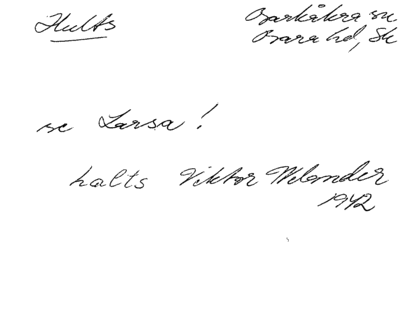 Hults
Barkåkra sn
Bara hd, Sk
se Larsa!
halts Viktor Welander
1942